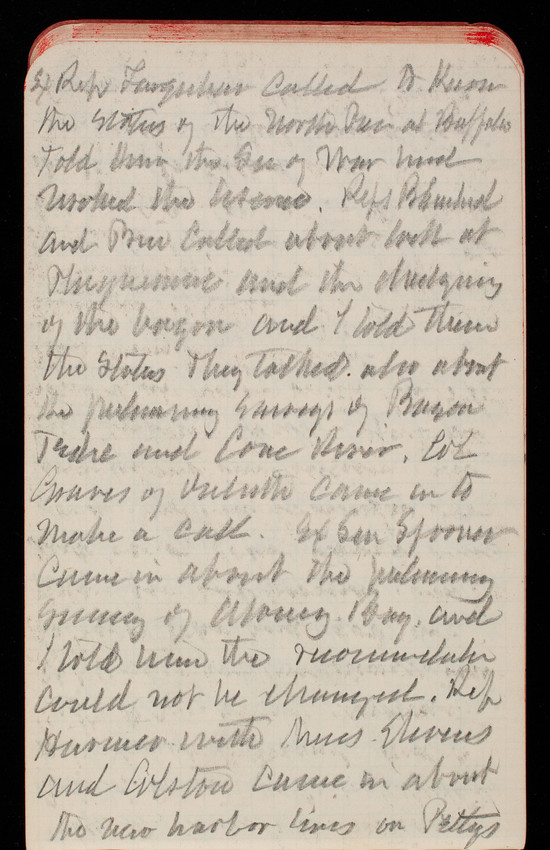 Ex Rep Farquhar called to know
the status of the North Pier at Buffalo
Told him the Sec of War had
revoked the license. Reps Blanchard
and Price called about lock at
Plaquemine and the dredging
of the bayou and I told them
the status They talked also about
the preliminary surveys of Bayou
Teche and Cane River. Col
Graves of Duluth came in to
make a call. Ex Sen Spooner
came in about the preliminary
survey of Bay and
I told him the
could not be changed. Rep
Harmer with Messrs Stevens
and Colston came in about
the new harbor lines on Pettys